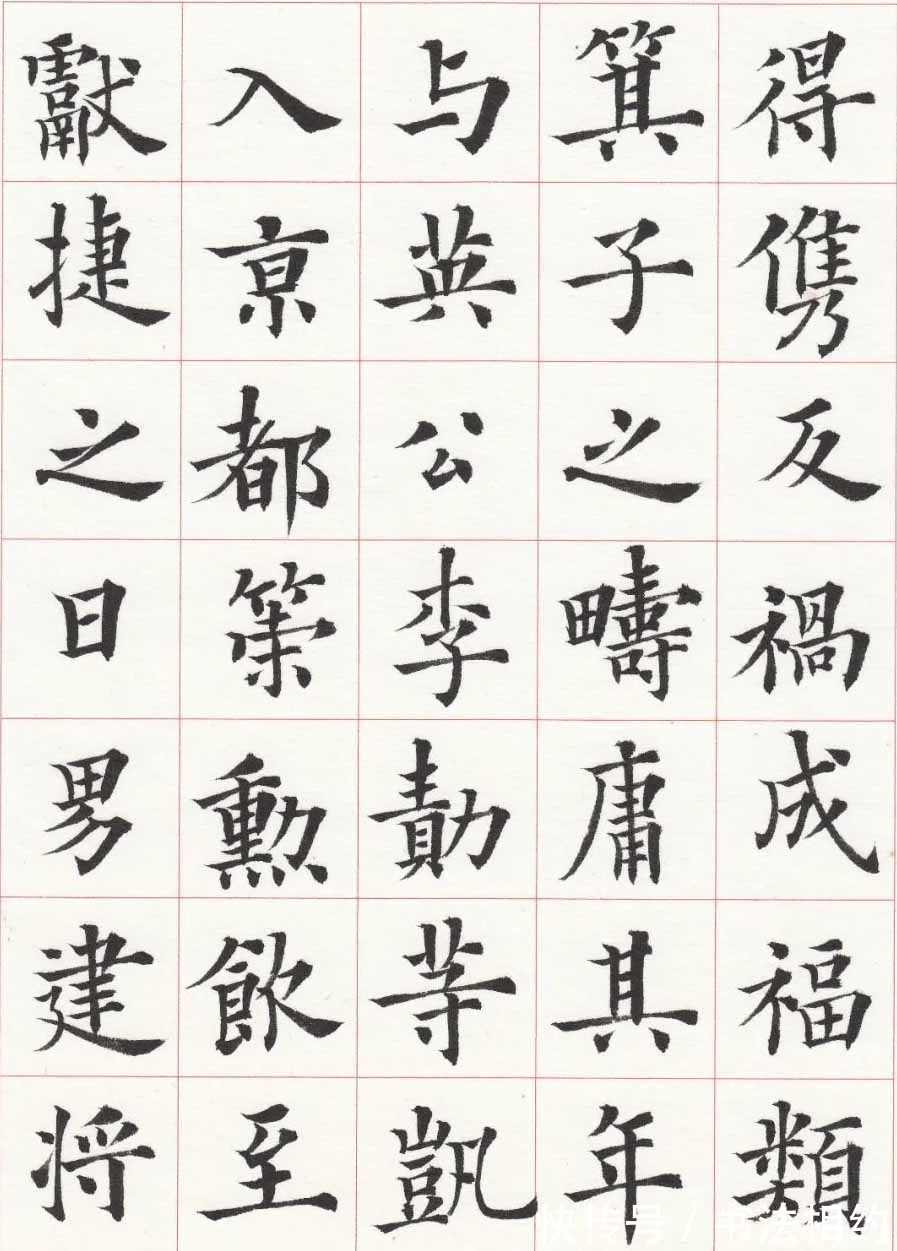 得儁反禍成福類
箕子之疇庸其年
与英公李勣等凱
入京都策勲飲至
獻捷之日男建将
快传号 / 书法相约